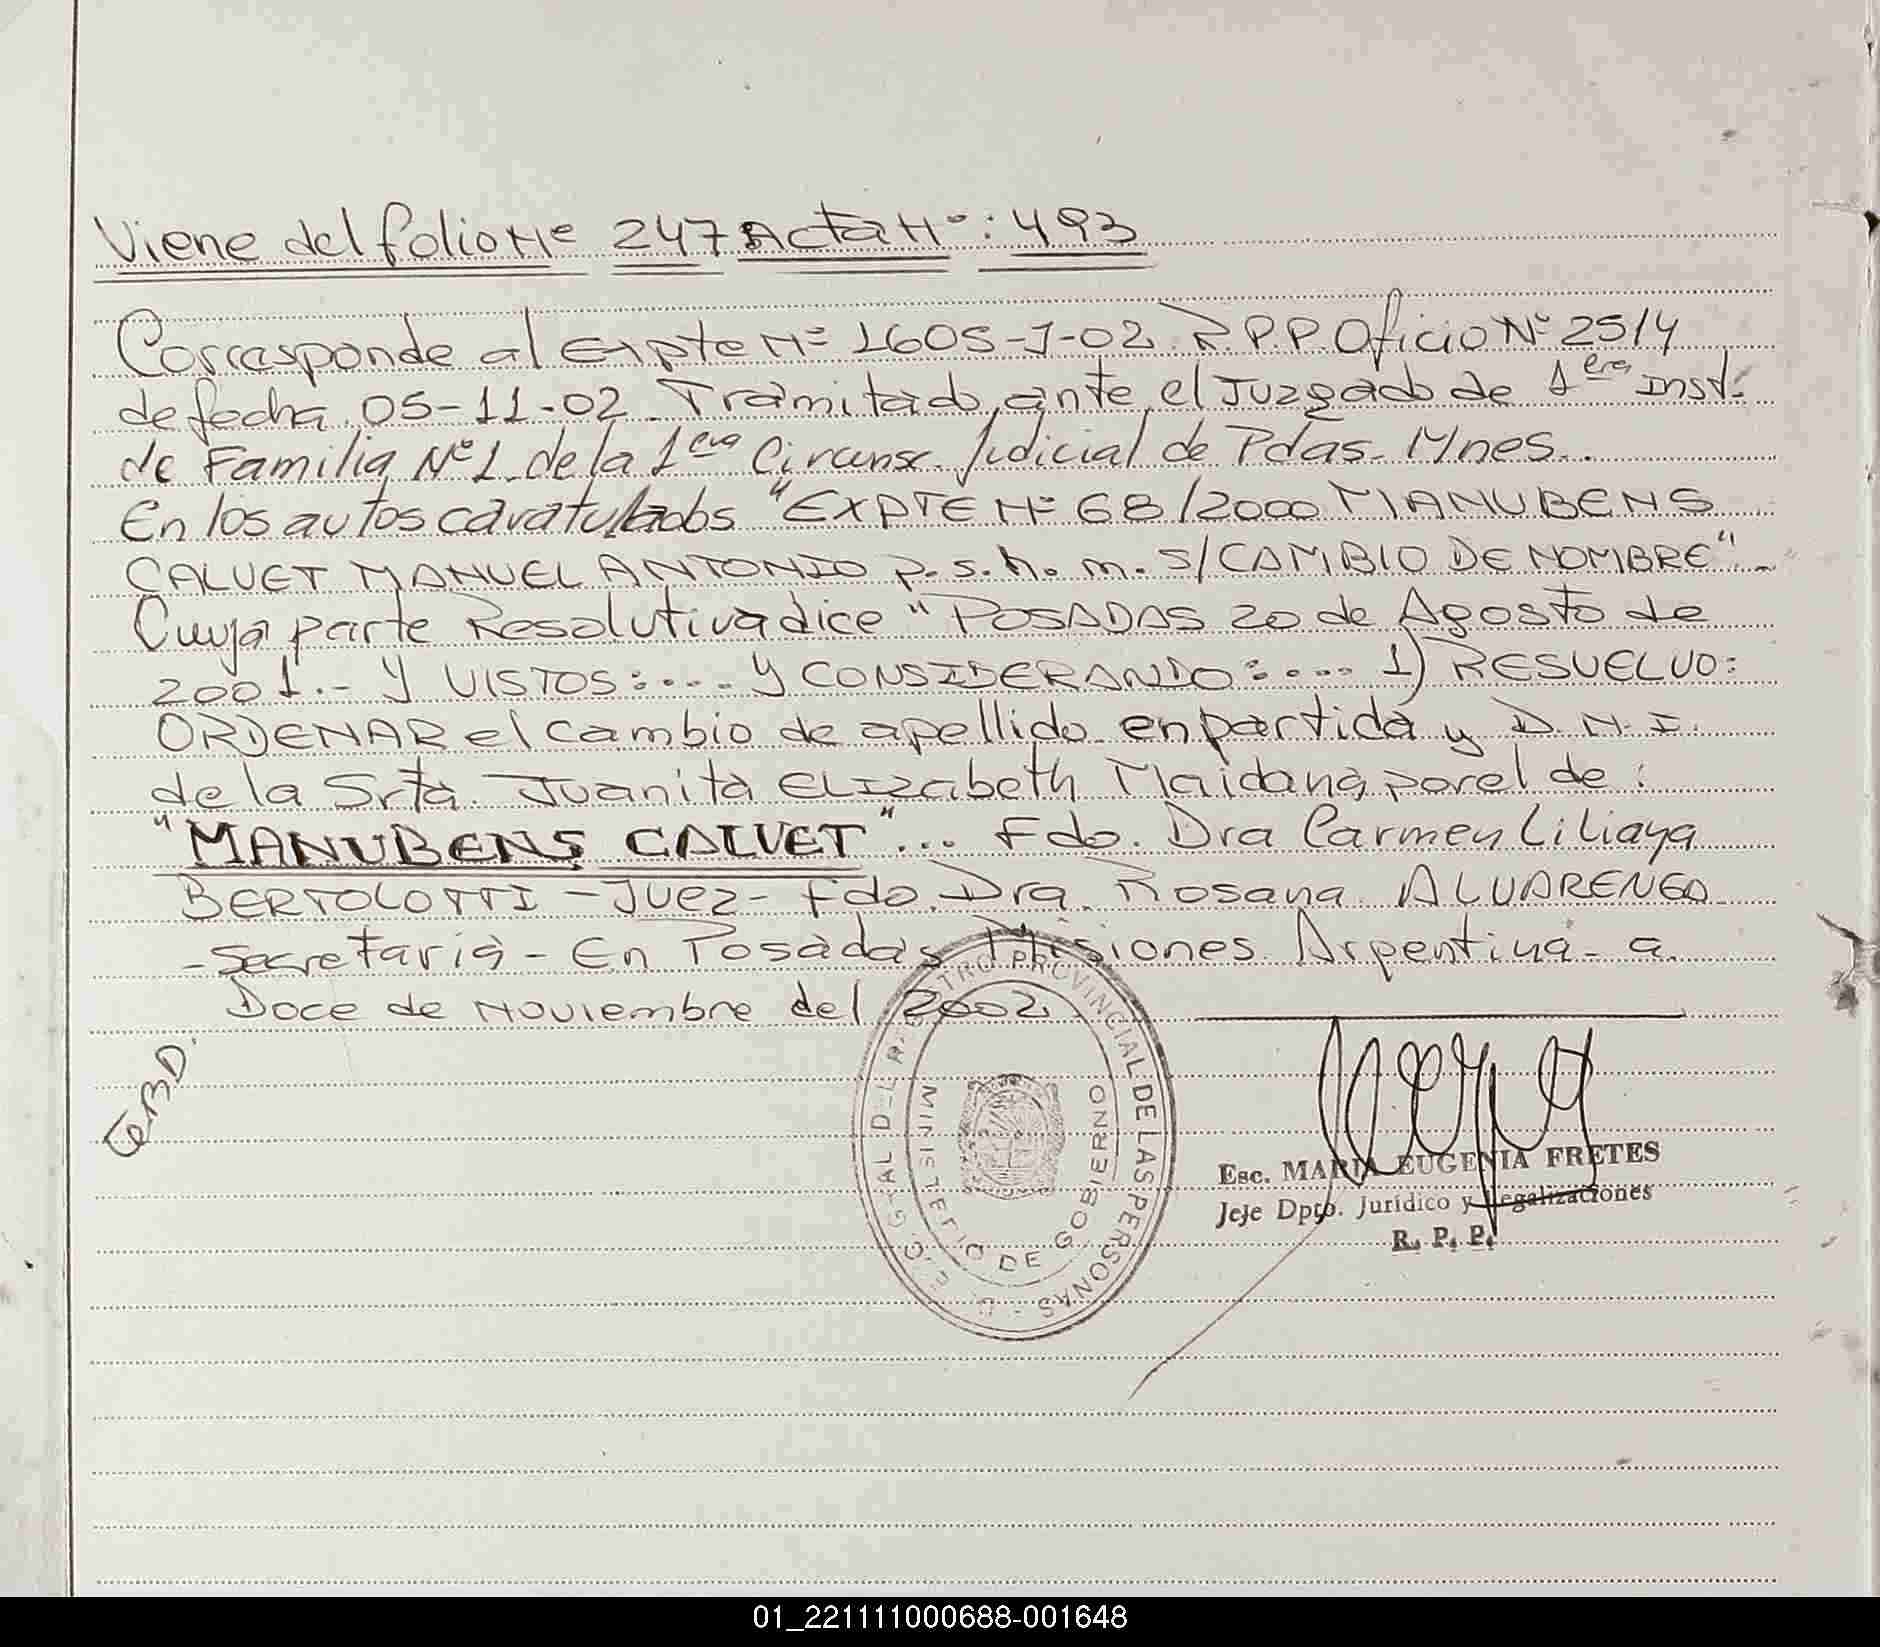 Viene del folio Nº 247 Acta Nº: 493
Corresponde al Expte Nº 1605-J-02 R.P.P. Oficio Nº 2514
de fecha 05-11-02 Tramitado ante el Juzgado de 1era Inst.
de Familia Nº 1 de la 1era Circunsc. Judicial de Pdas. Mnes.
En los autos caratulados "EXPTE Nº 68/2000 MANUBENS
CALVET MANUEL ANTONIO p.s.h.m. S/CAMBIO DE NOMBRE".-
Cuya parte Resolutiva dice "POSADAS 20 de Agosto de
2001.- Y VISTOS:.... Y CONSIDERANDO:.... 1) RESUELVO:
ORDENAR el cambio de apellido en partida y D.N.I.
de la Srta. Juanita Elizabeth Maidana por el de:
"MANUBENS CALVET"... Fdo. Dra Carmen Liliana
BERTOLOTTI - Juez - Fdo. Dra. Rosana ALVARENGA
- Secretaria - En Posadas Misiones Argentina - a
Doce de Noviembre del 2002
D. G. GRAL DEL REGISTRO PROVINCIAL DE LAS PERSONAS
MINISTERIO DE GOBIERNO
Esc. MARIA EUGENIA FRETES
Jefe Dpto. Jurídico y Legalizaciones
R. P. P.
01_221111000688-001648